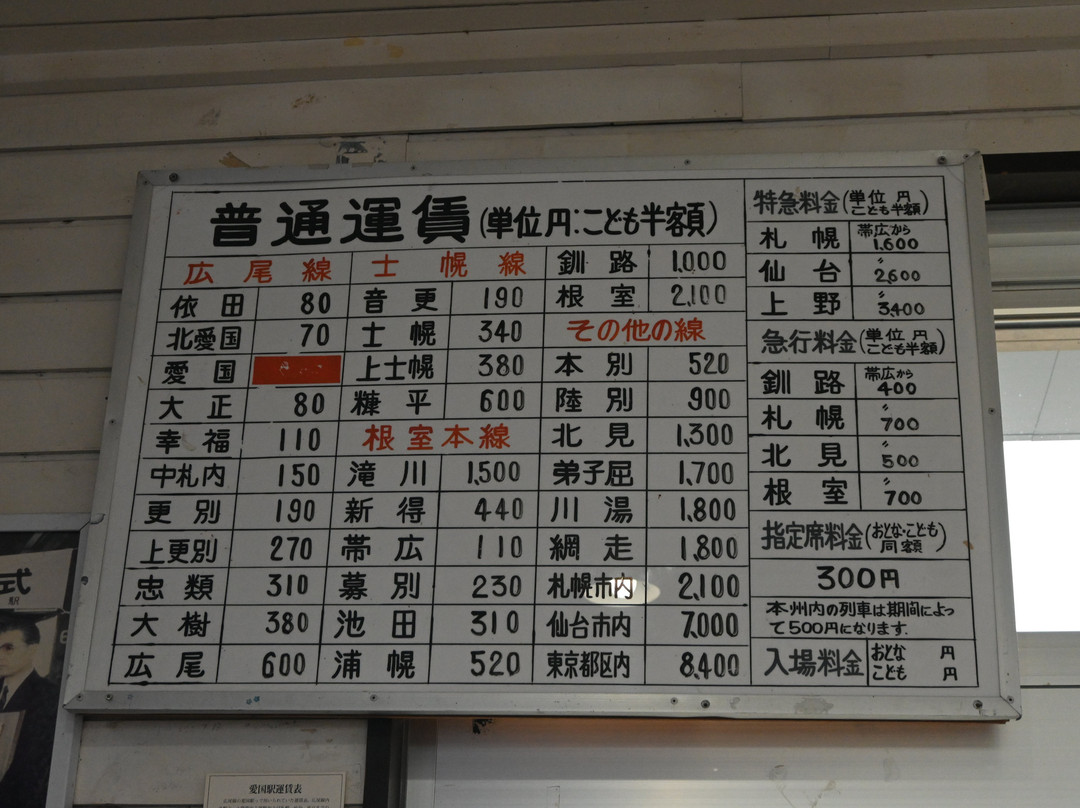 普通運賃(単位円:こども半額)
広尾線
依田 80
北愛国 70
愛国
大正 80
幸福 110
中札内 150
更別 190
上更別 270
忠類 310
大樹 380
広尾 600
士幌線
音更 190
士幌 340
上士幌 380
糠平 600
根室本線
滝川 1,500
新得 440
帯広 110
幕別 230
池田 310
浦幌 520
釧路 1,000
根室 2,100
その他の線
本別 520
陸別 900
北見 1,300
弟子屈 1,700
川湯 1,800
網走 1,800
札幌市内 2,100
仙台市内 7,000
東京都区内 8,400
特急料金(単位 円 こども半額)
札幌 帯広から 1,600
仙台 〃 2,600
上野 〃 3,400
急行料金(単位 円 こども半額)
釧路 帯広から 400
札幌 〃 700
北見 〃 500
根室 〃 700
指定席料金(おとな・こども 同額)
300円
本州内の列車は期間によっ
て500円になります.
入場料金 おとな 円
こども 円
式
駅
愛国駅運賃表